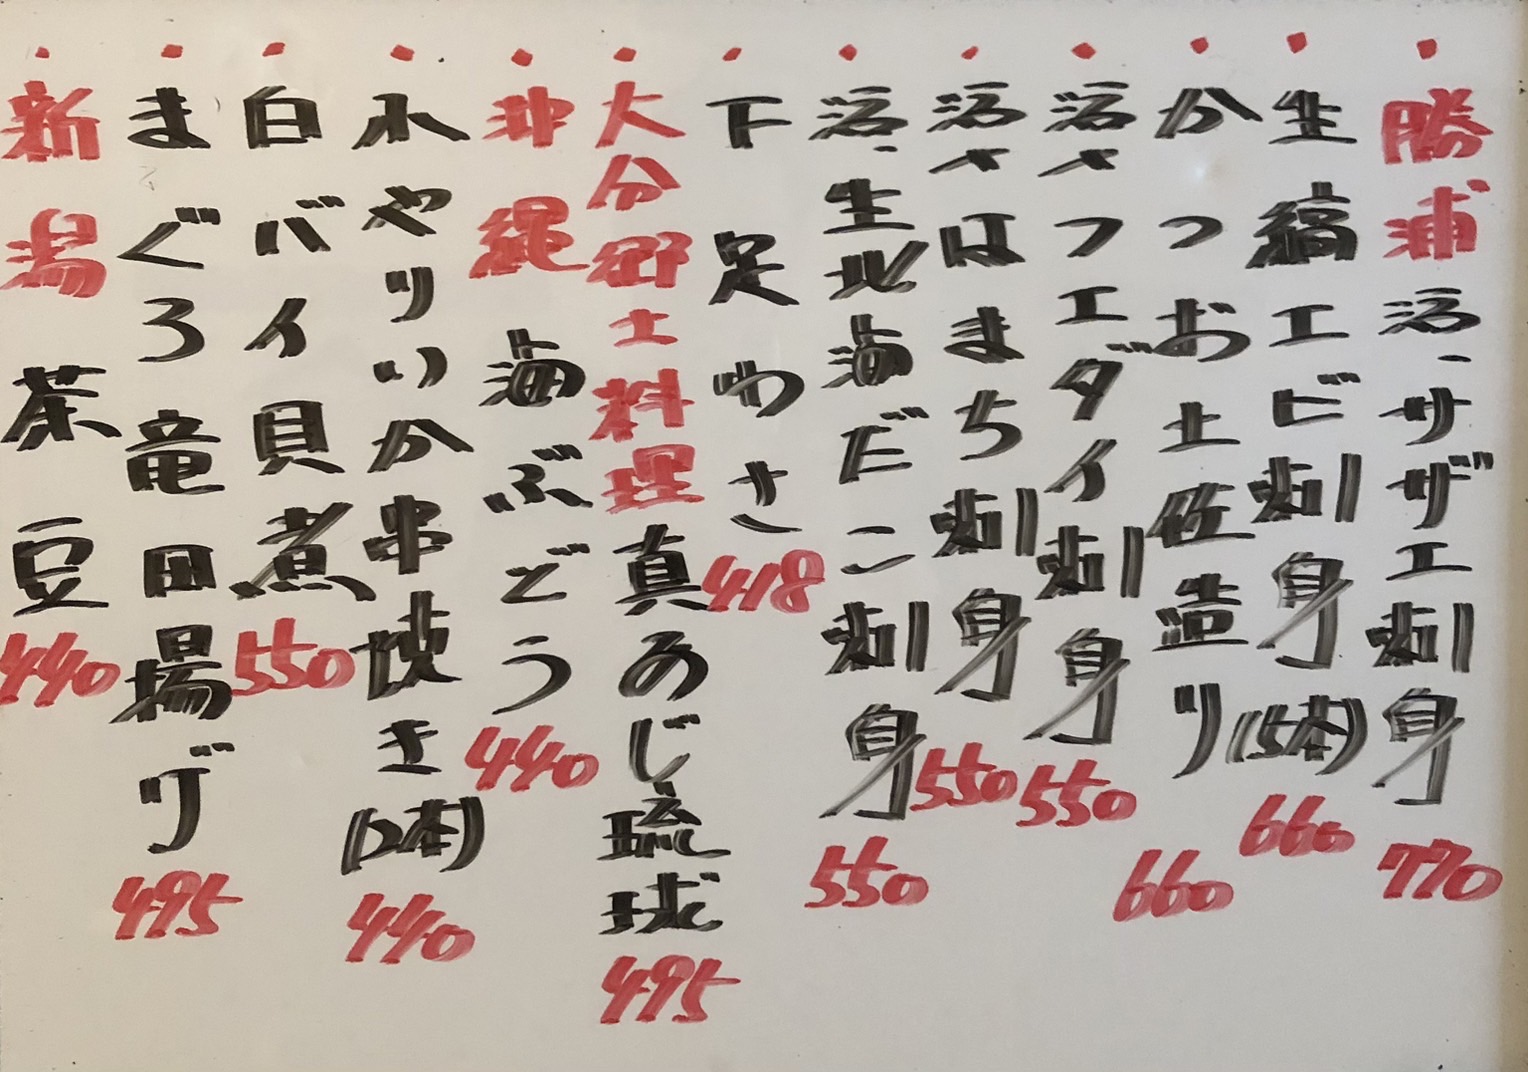 ・勝浦 活、サザエ刺身 770
・生縞エビ刺身(5本) 660
・かつお土佐造り 660
・活〆フエダイ刺身 550
・活〆はまち刺身 550
・活、生北海だこ刺身 550
・下足わさ 418
・大分郷土料理 真あじ琉球 495
・沖縄 海ぶどう 440
・小やりいか串焼き(2本) 440
・白バイ貝煮 550
・まぐろ竜田揚げ 495
・新潟 茶豆 440